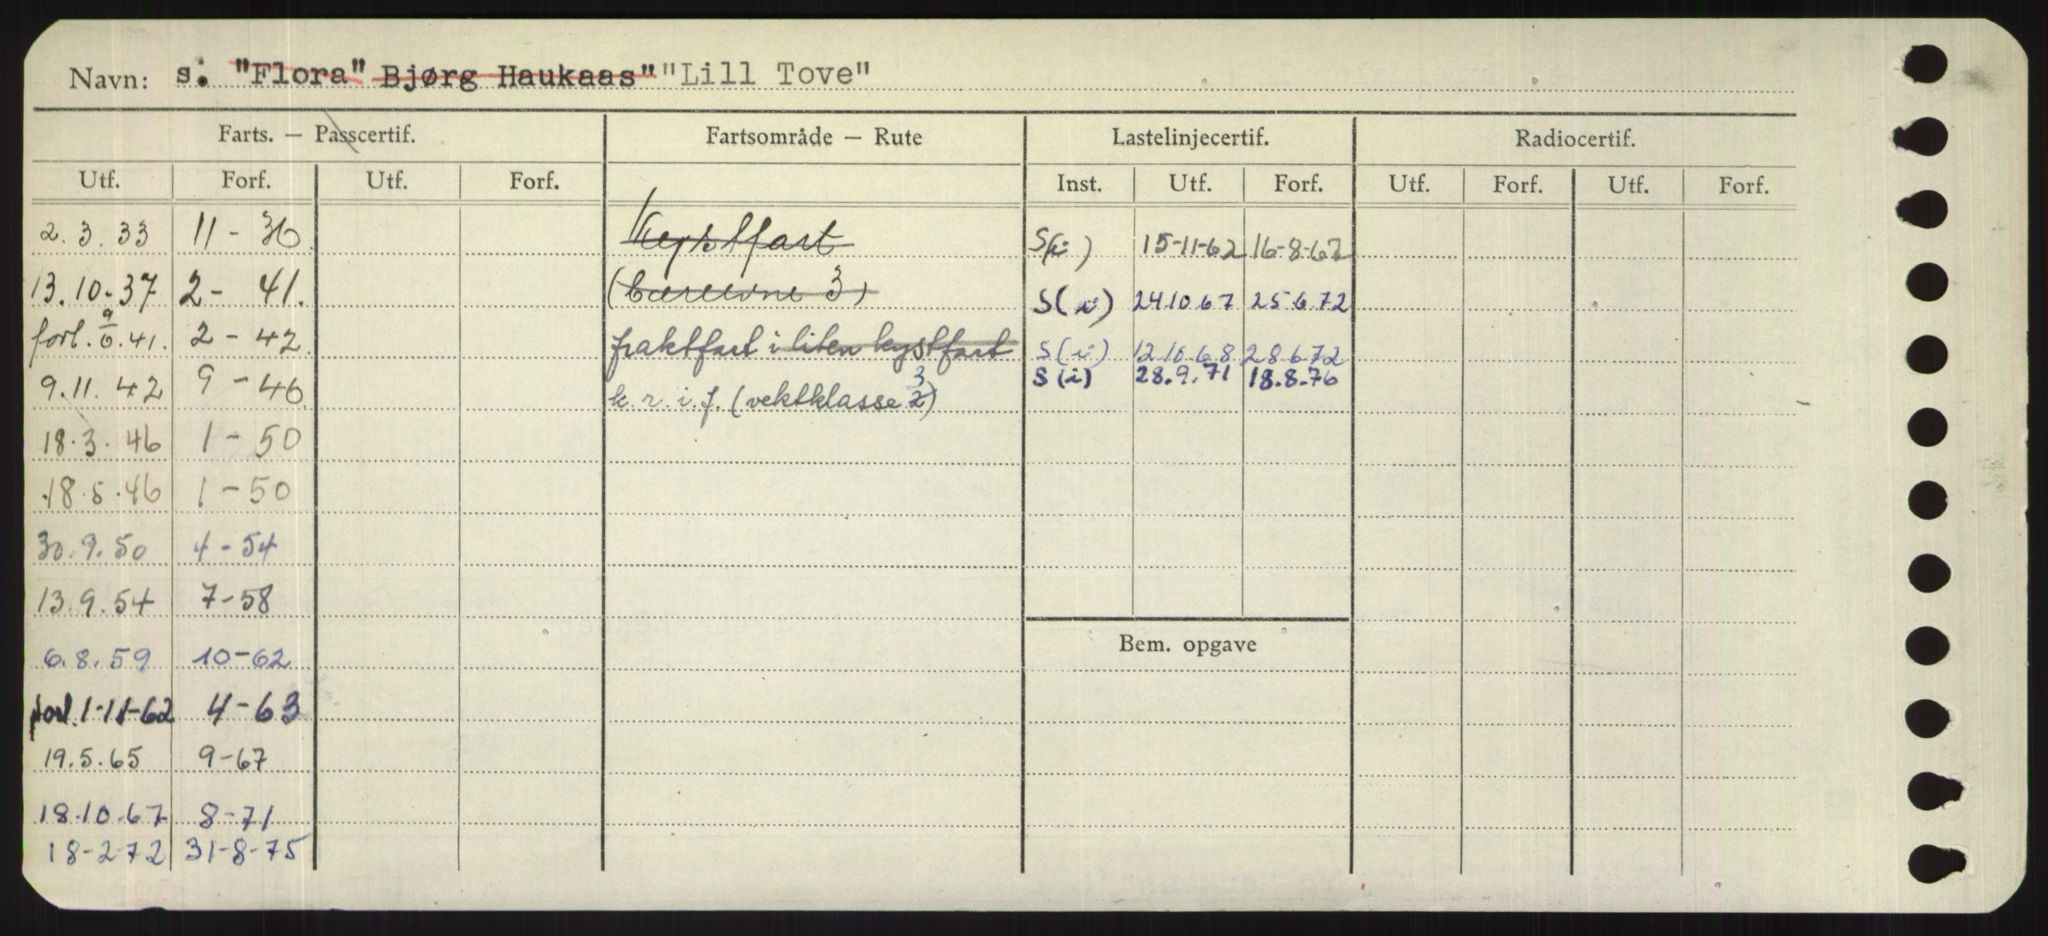 Navn: s. "Flora" Bjørg Haukaas" "Lill Tove"
Farts. — Passcertif. Fartsområde — Rute Lastelinjecertif. Radiocertif.
Utf. Forf. Utf. Forf. Inst. Utf. Forf. Utf. Forf. Utf. Forf.
2.3.33 11-36 Kystfart S(i) 15-11-62 16-8-67
13.10.37 2-41. (bæreevne 3) S(i) 24.10.67 25.6.72
forl. 9/6.41. 2-42 fraktfart i liten kystfart S(i) 12.10.68 28.6.72
9.11.42 9-46 k.r.i.f. (vektklasse 2) 3 S(i) 28.9.71 18.8.76
18.3.46 1-50
18.5.46 1-50
30.9.50 4-54
13.9.54 7-58
Bem. opgave
6.8.59 10-62
forl. 1-11-62 4-63
19.5.65 9-67
18.10.67 8-71
18-2-72 31-8-75